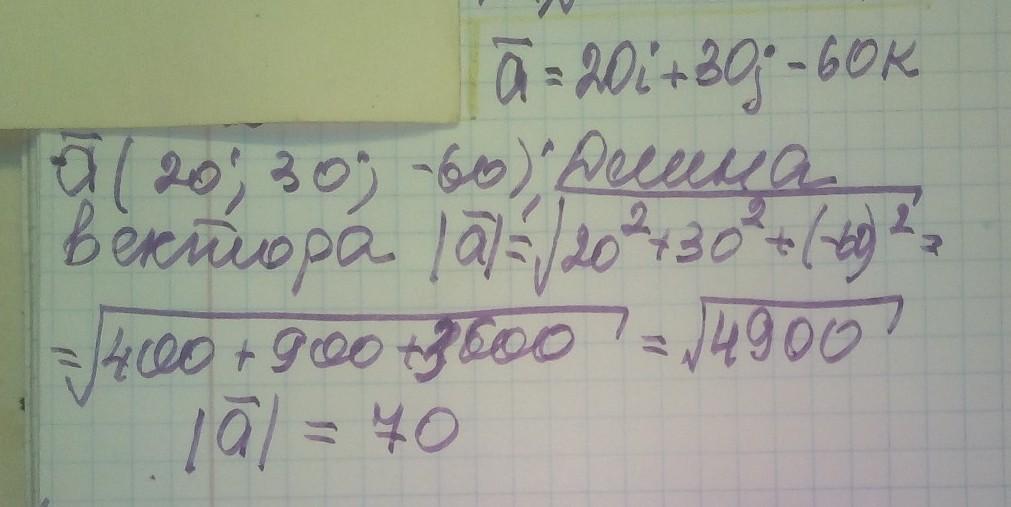 ā = 20i + 30j - 60к
ā (20; 30; -60); Длина
вектора |ā| = √20² + 30² + (-60)² =
= √400 + 900 + 3600 = √4900
|ā| = 70